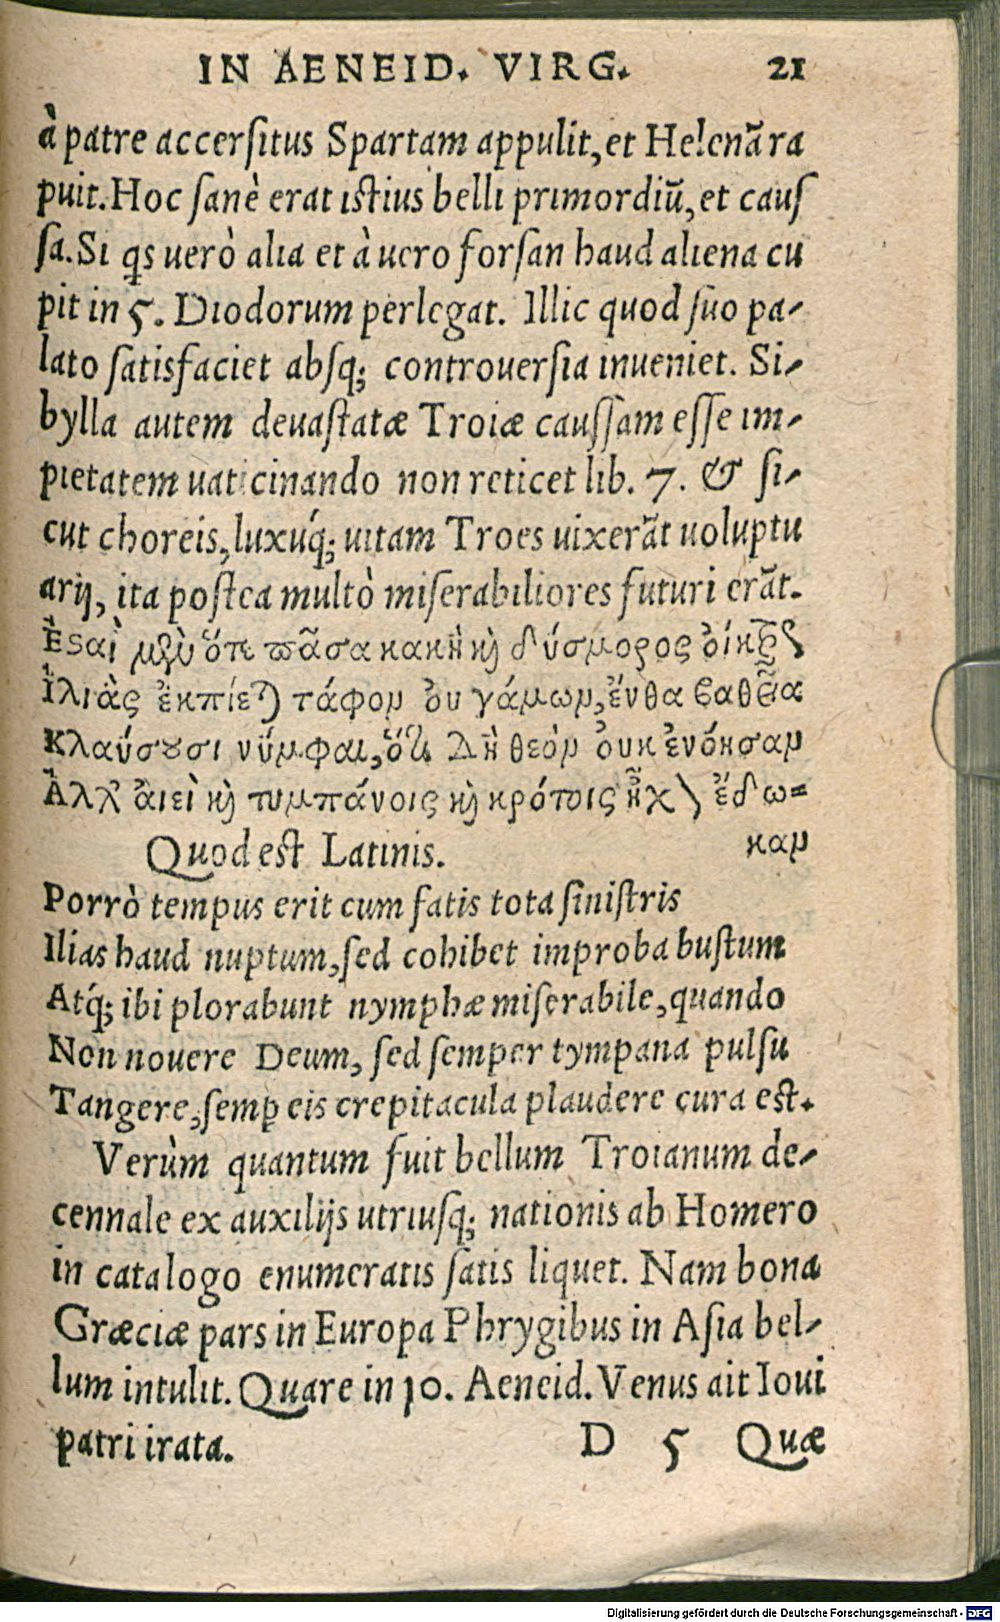 IN AENEID. VIRG. 21
à patre accersitus Spartam appulit, et Helenã ra
puit. Hoc sanè erat istius belli primordiũ, et caus
sa. Si qs uerò alia et à uero forsan haud aliena cu
pit in 5. Diodorum perlegat. Illic quod suo pa-
lato satisfaciet absq; controuersia inueniet. Si-
bylla autem deuastatæ Troiæ caussam esse im-
pietatem uaticinando non reticet lib. 7. & si-
cut choreis, luxuq́; uitam Troes uixerãt uoluptu
arij, ita postea multò miserabiliores futuri erãt.
Ἔσαὶ ὅτε πᾶσα κακὴ καὶ δύσμορος
Ἰλιὰς ἐκπίεται τάφον οὐ γάμων, ἔνθα βαθεῖα
Κλαύσουσι νύμφαι, ὅτι Δὴ θεὸν οὐκ ἐνόησαν
Ἀλλ' αἰεὶ καὶ τυμπάνοις καὶ κρότοις ἦχον ἔδω=
καν
Quod est Latinis.
Porrò tempus erit cum fatis tota sinistris
Ilias haud nuptum, sed cohibet improba bustum
Atq́; ibi plorabunt nymphæ miserabile, quando
Non nouere Deum, sed semper tympana pulsu
Tangere, semp eis crepitacula plaudere cura est.
Verùm quantum fuit bellum Troianum de-
cennale ex auxilijs utriusq; nationis ab Homero
in catalogo enumeratis satis liquet. Nam bona
Græciæ pars in Europa Phrygibus in Asia bel-
lum intulit. Quare in 10. Aeneid. Venus ait Ioui
patri irata. D 5 Quæ
Digitalisierung gefördert durch die Deutsche Forschungsgemeinschaft - DFG